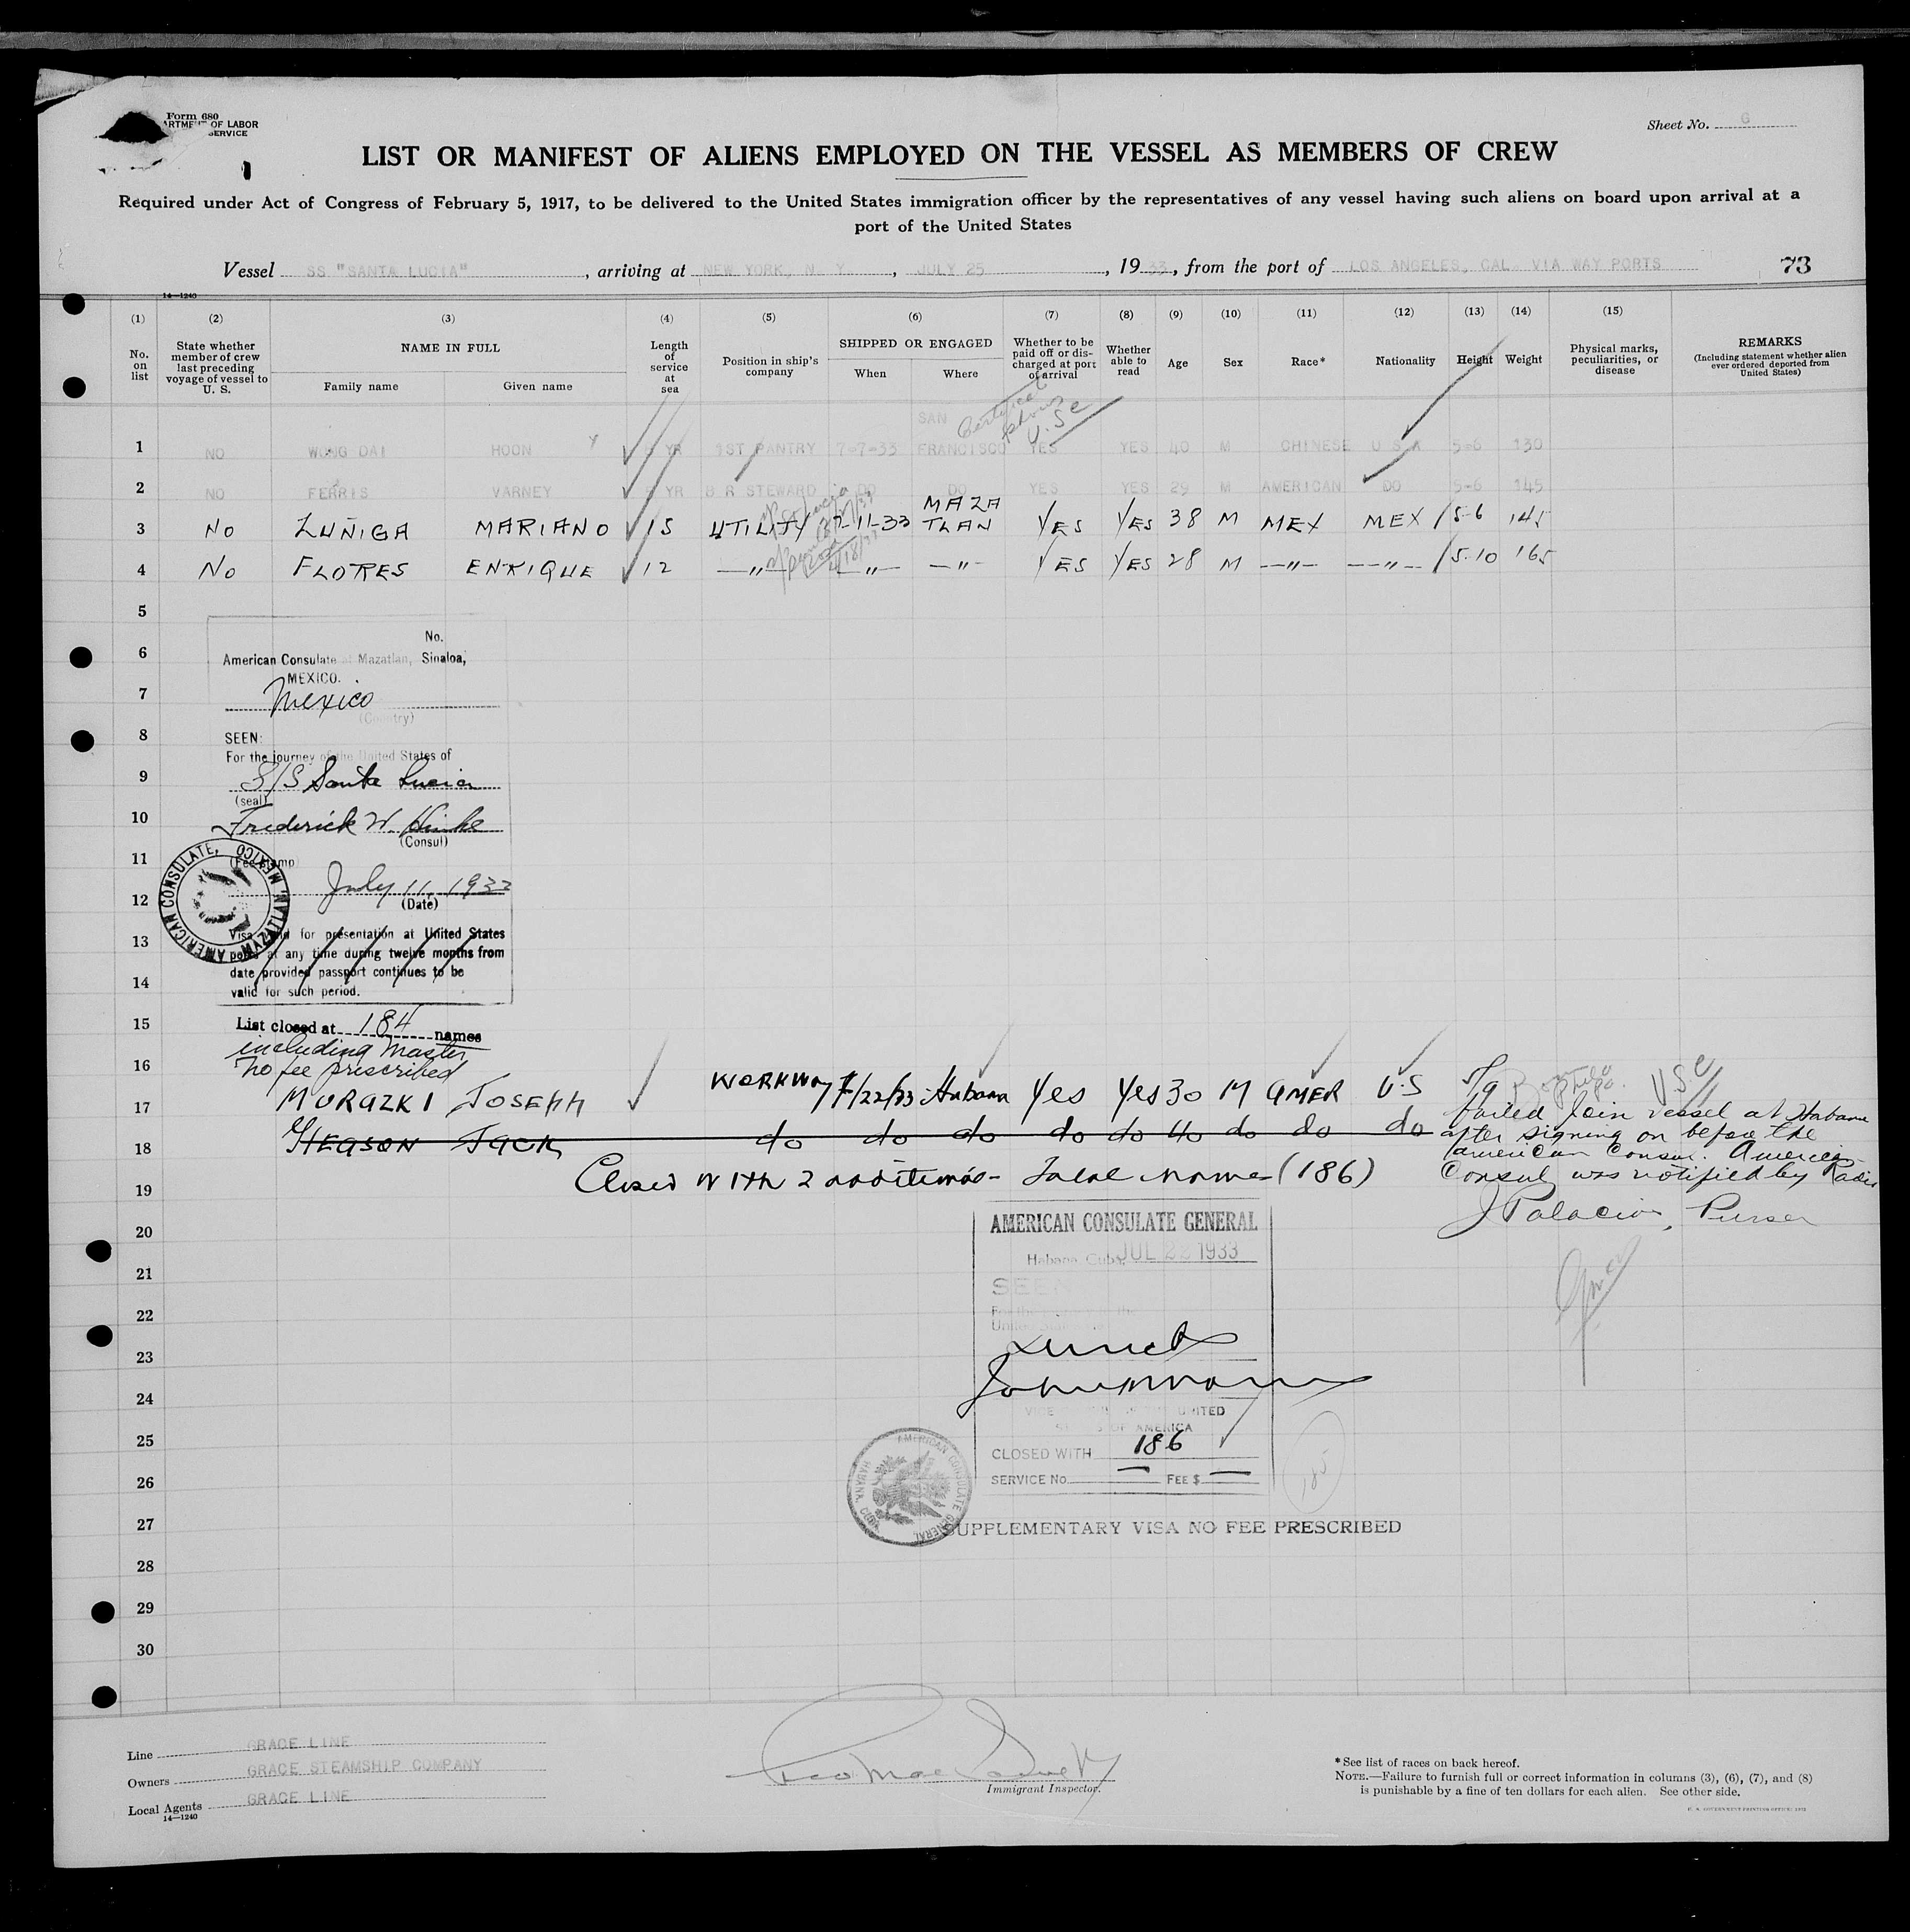 Form 680
OF LABOR
SERVICE
Sheet No. 6
LIST OR MANIFEST OF ALIENS EMPLOYED ON THE VESSEL AS MEMBERS OF CREW
Required under Act of Congress of February 5, 1917, to be delivered to the United States immigration officer by the representatives of any vessel having such aliens on board upon arrival at a
port of the United States
Vessel SS "SANTA LUCIA", arriving at NEW YORK, N. Y., JULY 25, 1933, from the port of LOS ANGELES, CAL. VIA WAY PORTS 73
14—1240
(1) (2) (3) (4) (5) (6) (7) (8) (9) (10) (11) (12) (13) (14) (15)
No. on list
State whether member of crew last preceding voyage of vessel to U. S.
NAME IN FULL
Family name
Given name
Length of service at sea
Position in ship's company
SHIPPED OR ENGAGED
When
Where
Whether to be paid off or discharged at port of arrival
Whether able to read
Age
Sex
Race*
Nationality
Height
Weight
Physical marks, peculiarities, or disease
REMARKS
(Including statement whether alien ever ordered deported from United States)
U.S.C
1 NO WONG DAI HOON YR 1ST PANTRY 7-7-33 SAN FRANCISCO YES YES 40 M CHINESE U S A 5-6 130
2 NO FERRIS VARNEY YR B R STEWARD DO DO YES YES 29 M AMERICAN DO 5-6 145
3 NO ZUÑIGA MARIANO 15 UTILITY 7-11-33 MAZATLAN YES YES 38 M MEX MEX 5-6 145
4 NO FLORES ENRIQUE 12 —"— —"— —"— YES YES 28 M —"— —"— 5-10 165
5
6
7
8
9
10
11
12
13
14
15
16
17
18
19
20
21
22
23
24
25
26
27
28
29
30
No.
American Consulate at Mazatlan, Sinaloa,
MEXICO.
Mexico
(Country)
SEEN:
For the journey of the United States of
S/S Santa Lucia
(seal)
Frederick W. Hinke
(Consul)
(Fee stamp)
July 11, 1933
(Date)
AMERICAN CONSULATE, MAZATLAN, MEXICO
Visa valid for presentation at United States
ports at any time during twelve months from
date provided passport continues to be
valid for such period.
List closed at 184 names
including Master
No fee prescribed
MURAZKI JOSEPH WORKWAY 7/22/33 Habana Yes Yes 30 M AMER U.S U.S.C
GLEASON JACK do do do do do 40 do do do
Failed join vessel at Habana
after signing on before the
American Consul. American
Consul was notified by Radio
J Palacios, Purser
Closed with 2 additions - Total names (186)
AMERICAN CONSULATE GENERAL
Habana, Cuba, JUL 22 1933
SEEN
For the
United States
VICE UNITED
OF AMERICA
CLOSED WITH 186
SERVICE No. — FEE $ —
185
AMERICAN CONSULATE GENERAL HAVANA, CUBA
SUPPLEMENTARY VISA NO FEE PRESCRIBED
Line GRACE LINE
Owners GRACE STEAMSHIP COMPANY
Local Agents GRACE LINE
14—1240
Immigrant Inspector.
*See list of races on back hereof.
NOTE.—Failure to furnish full or correct information in columns (3), (6), (7), and (8)
is punishable by a fine of ten dollars for each alien. See other side.